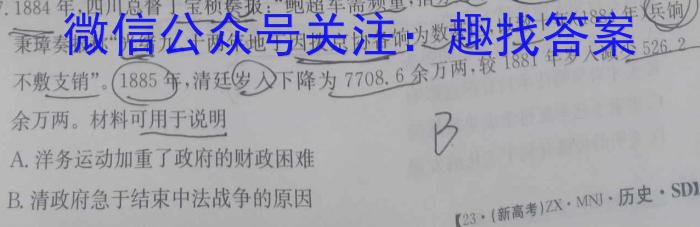 1884年,四川总督丁宝桢奏报:“鲍超军需频重,
微信公众号关注:趣找答案
秉璋奏
饷为数
不敷支销”。1885年,清廷岁入下降为7708.6余万两,较1881年岁入减少526.2
余万两。材料可用于说明
A.洋务运动加重了政府的财政困难
B
B.清政府急于结束中法战争的原因
【23·(新高考)ZX·MNJ·历史·SD】